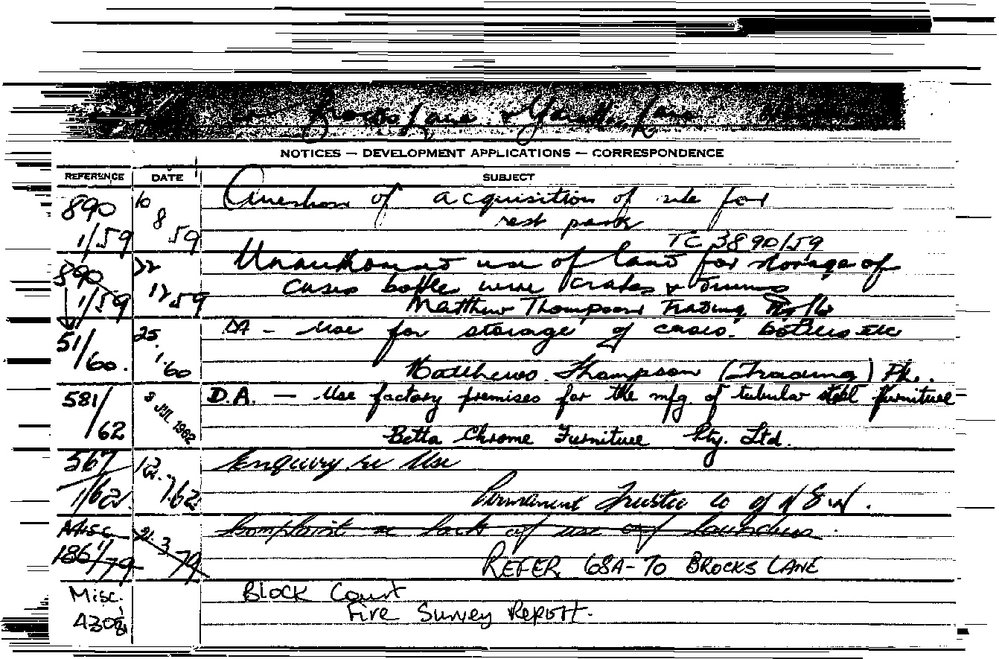 NOTICES — DEVELOPMENT APPLICATIONS — CORRESPONDENCE
REFERENCE DATE SUBJECT
890 10 Question of acquisition of site for
1/59 8 59 rest park
TC 3890/59
890 Unauthorised use of land for storage of
1/59 12 59 cases bottles wire crates & drums
Matthew Thompson Trading
51/60. 25. 1. 60 DA - Use for storage of cases. bottles etc
Matthews Thompson (Trading) P/L.
581/62 3 JUL 1962 D.A. — Use factory premises for the mfg. of tubular steel furniture
Betta Chrome Furniture Pty. Ltd.
567 12. Enquiry re Use
1/62. 7.62 Permanent Trustee Co of N S W.
Misc 21.3.79 Complaint re lack of use of laundries.
1861/79 REFER 68A-70 BROCKS LANE
Misc. Block Court
A308 Fire Survey Report.